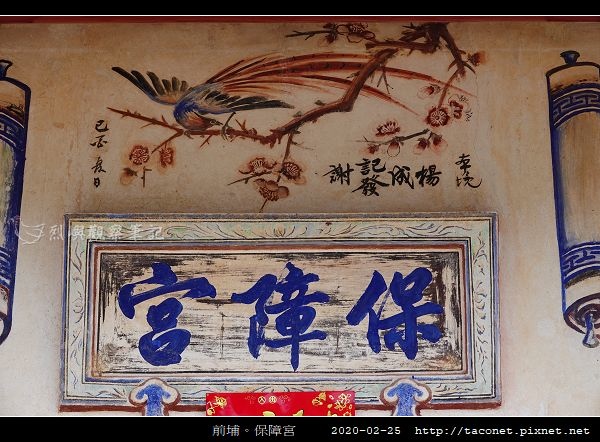 己酉葭月
杏坑
楊成發記謝
烈嶼觀察筆記
保障宮
前埔。保障宮 2020-02-25 http://taconet.pixnet.net